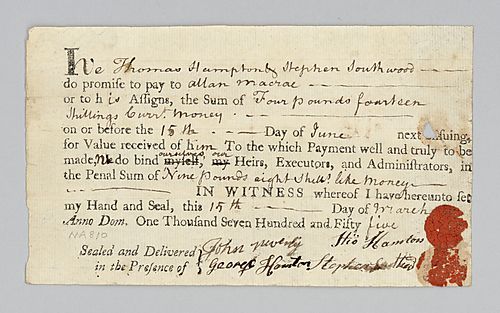 We Thomas Hampton & Stephen Southwood
do promise to pay to allan macrae
or to his Assigns, the Sum of Four pounds fourteen
Shillings Curr. money
on or before the 15th Day of June next ensuing,
for Value received of him. To the which Payment well and truly to be
ourselves, our
made, We do bind myself, my Heirs, Executors, and Administrators, in
the Penal Sum of Nine pounds eight Shills. like money
IN WITNESS whereof I have hereunto set
my Hand and Seal, this 15th Day of March
Anno Dom. One Thousand Seven Hundred and Fifty five
NA810
Sealed and Delivered John Tho Hamton
in the Presence of George Stephen